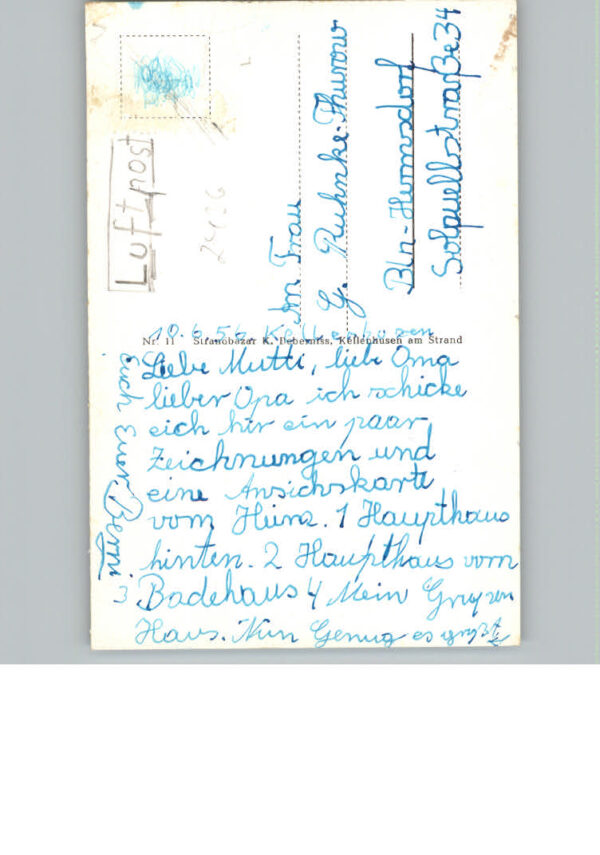 Luftpost
2426
An Frau
G. Ruhnke-Thurow
Bln-Hermsdorf
Solquellstraße 34
10.6.56 Kellenhusen
Nr. 11 Strandbazar K. Deberniss, Kellenhusen am Strand
Liebe Mutti, liebe Oma
lieber Opa ich schicke
eich hir ein paar
Zeichnungen und
eine Ansichskarte
vom Heim. 1 Haupthaus
hinten. 2 Haupthaus vorn
3 Badehaus 4 Mein Grupen
Haus. Nun Genug es grüßt
Euch Euer Bernni